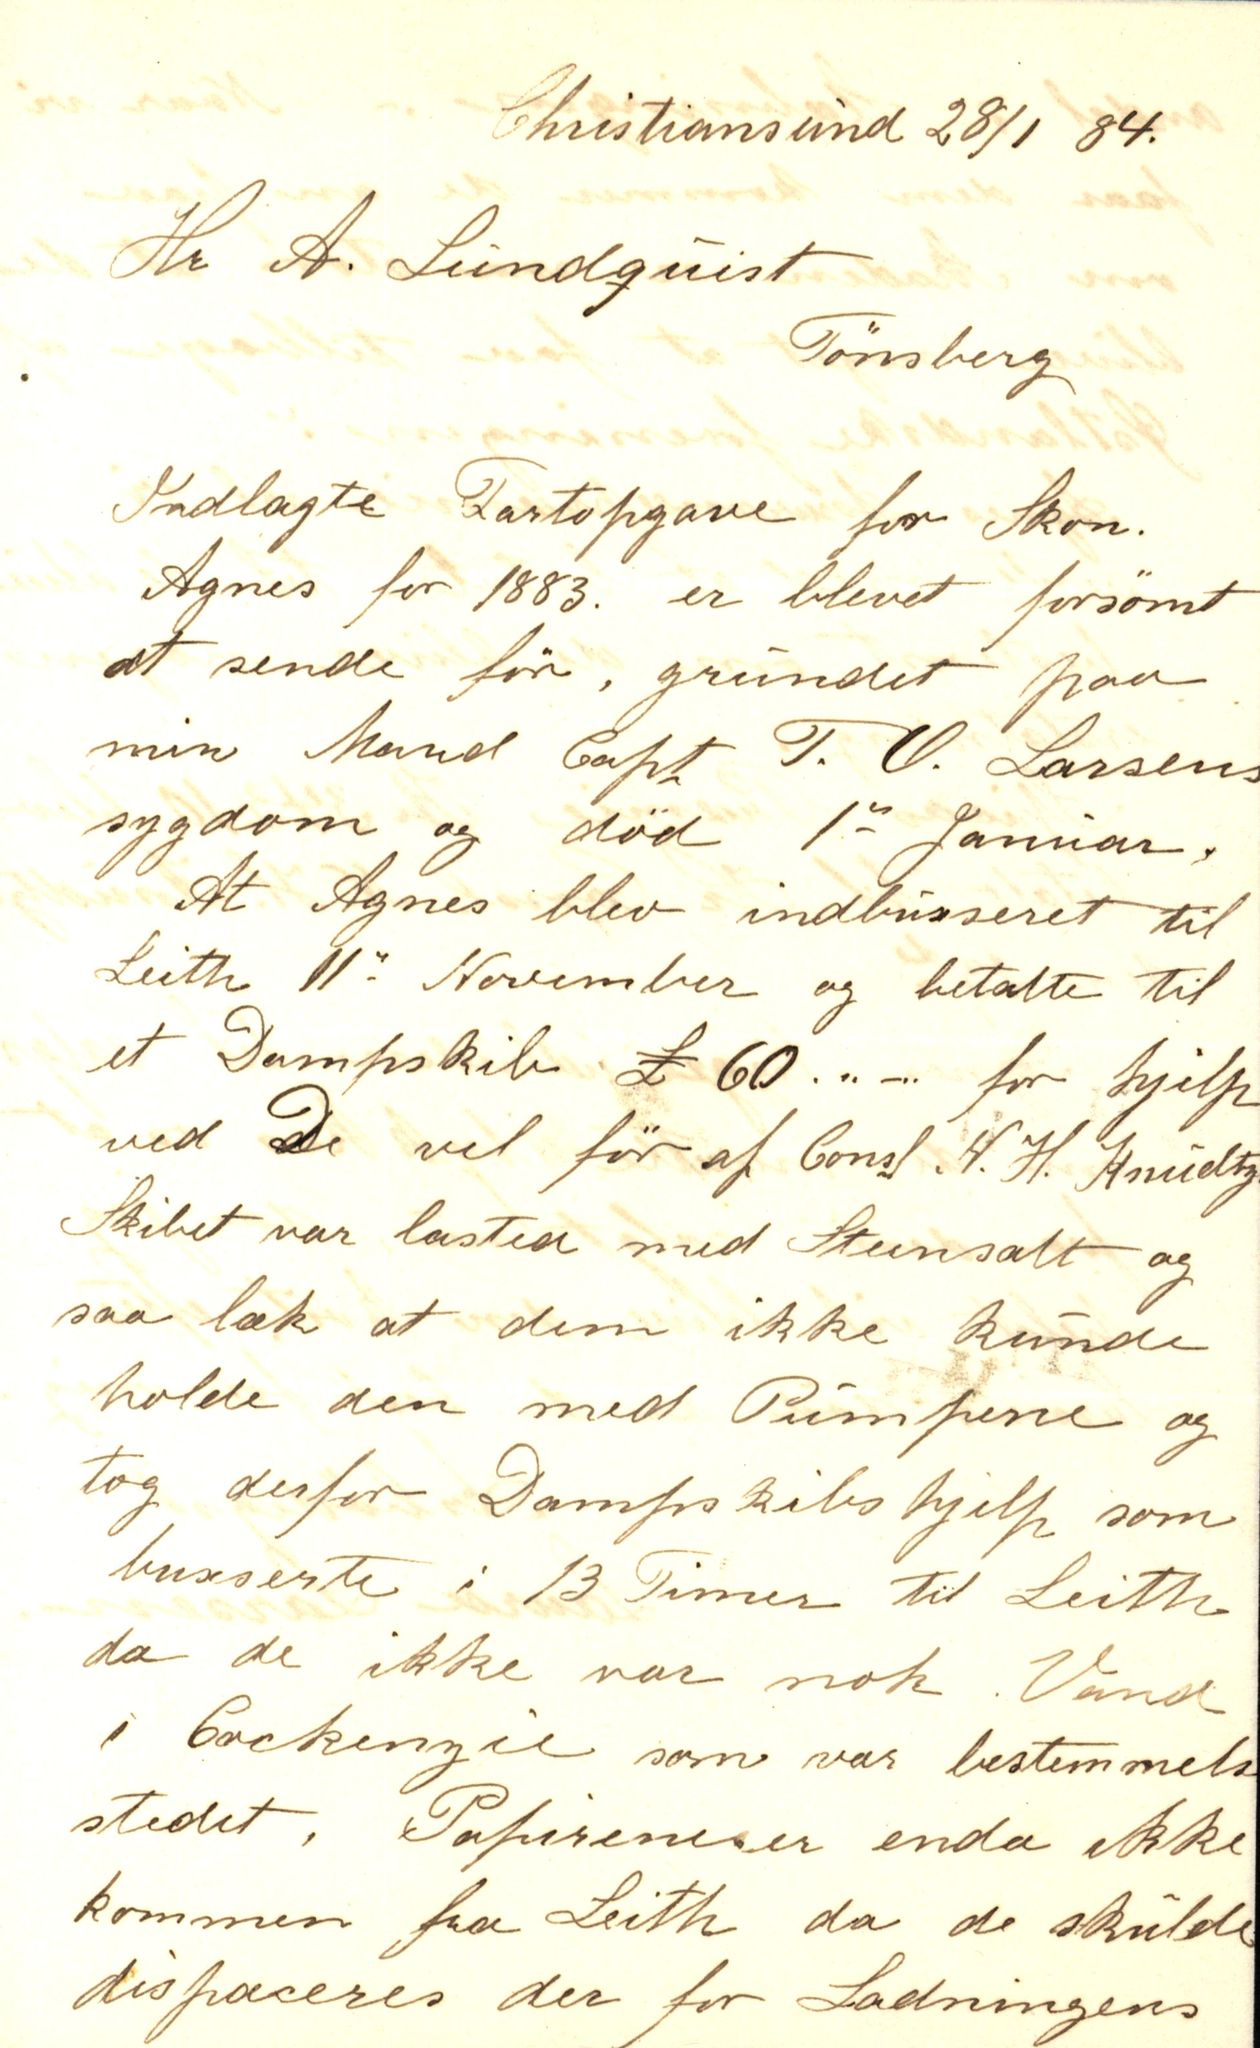 Christiansund 28/1 84.
Hr A. Lundquist
Tönsberg
Indlagte Fartopgave for Skon.
Agnes for 1883. er blevet forsömt
at sende för, grundet paa
min Mand Capt T. O. Larsens
sygdom og död 1" Januar.
At Agnes blev indbuxseret til
Leith 11" November og betalte til
et Dampskib £ 60 . " - for hjelp
ved De vel för af Consl N. H. Knudtz
Skibet var lasted med Steensalt og
saa læk at dem ikke kunde
holde den med Pumpene og
tog derfor Dampskibshjelp som
buxserte i 13 Timer til Leith
da de ikke var nok Vand
i Cockenzie som var bestemmels
stedet, Papirene er enda ikke
kommen fra Leith da de skulde
dispaceres der for Ladningens